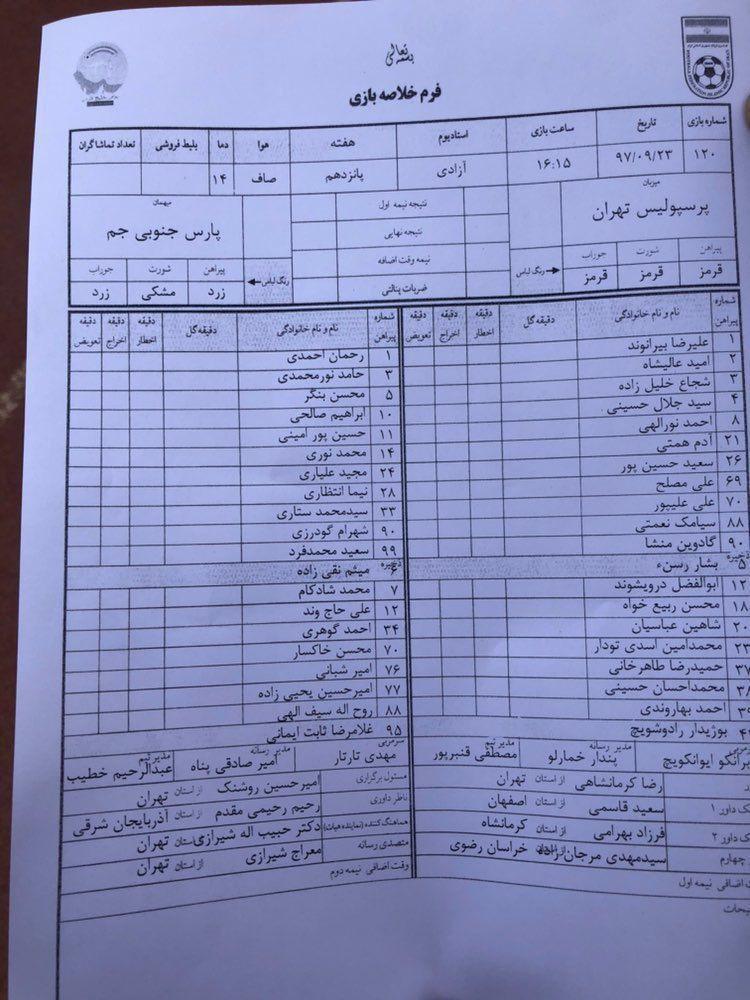 بسمه تعالی
فرم خلاصه بازی
شماره بازی تاریخ ساعت بازی استادیوم هفته هوا دما بلیط فروشی تعداد تماشاگران
۱۲۰ ۹۷/۰۹/۲۳ ۱۶:۱۵ آزادی پانزدهم صاف ۱۴
میزبان نتیجه نیمه اول: میهمان
پرسپولیس تهران نتیجه نهایی پارس جنوبی جم
نیمه وقت اضافه
پیراهن شورت جوراب رنگ لباس ضربات پنالتی رنگ لباس پیراهن شورت جوراب
قرمز قرمز قرمز زرد مشکی زرد
شماره پیراهن نام و نام خانوادگی دقیقه گل دقیقه اخطار دقیقه اخراج دقیقه تعویض
۱ علیرضا بیرانوند
۲ امید عالیشاه
۳ شجاع خلیل زاده
۴ سید جلال حسینی
۸ احمد نورالهی
۲۱ آدم همتی
۲۶ سعید حسین پور
۶۹ علی مصلح
۷۰ علی علیپور
۸۸ سیامک نعمتی
۹۰ گادوین منشا
ذخیره
۵ بشار رسن
۱۲ ابوالفضل درویشوند
۱۸ محسن ربیع خواه
۲۰ شاهین عباسیان
۲۳ محمدامین اسدی تودار
۳۷ حمیدرضا طاهرخانی
۳۸ محمداحسان حسینی
احمد بهاروندی
بوژیدار رادوشویچ
برانکو ایوانکویچ مدیر رسانه پندار خمارلو مدیر تیم مصطفی قنبرپور
رضا کرمانشاهی از استان تهران
ک داور ۱ سعید قاسمی از استان اصفهان
ک داور ۲ فرزاد بهرامی از استان کرمانشاه
چهارم سیدمهدی مرجان زاده از استان خراسان رضوی
ت اضافی نیمه اول
شماره پیراهن نام و نام خانوادگی دقیقه گل دقیقه اخطار دقیقه اخراج دقیقه تعویض
۱ رحمان احمدی
۳ حامد نورمحمدی
۵ محسن بنگر
۱۰ ابراهیم صالحی
۱۱ حسین پور امینی
۱۴ محمد نوری
۲۴ مجید علیاری
۲۸ نیما انتظاری
۳۳ سیدمحمد ستاری
۹۰ شهرام گودرزی
۹۹ سعید محمدفرد
ذخیره
۶ میثم نقی زاده
۷ محمد شادکام
۱۲ علی حاج وند
۳۴ احمد گوهری
۷۰ محسن خاکسار
۷۶ امیر شبانی
۷۷ امیرحسین یحیی زاده
۸۸ روح اله سیف الهی
۹۵ غلامرضا ثابت ایمانی
سرمربی مهدی تارتار مدیر رسانه امیر صادقی پناه مدیر تیم عبدالرحیم خطیب
مسئول برگزاری امیرحسین روشنک از استان تهران
ناظر داوری رحیم رحیمی مقدم از استان آذربایجان شرقی
هماهنگ کننده (نماینده هیات) دکتر حبیب اله شیرازی از استان تهران
متصدی رسانه معراج شیرازی از استان تهران
وقت اضافی نیمه دوم